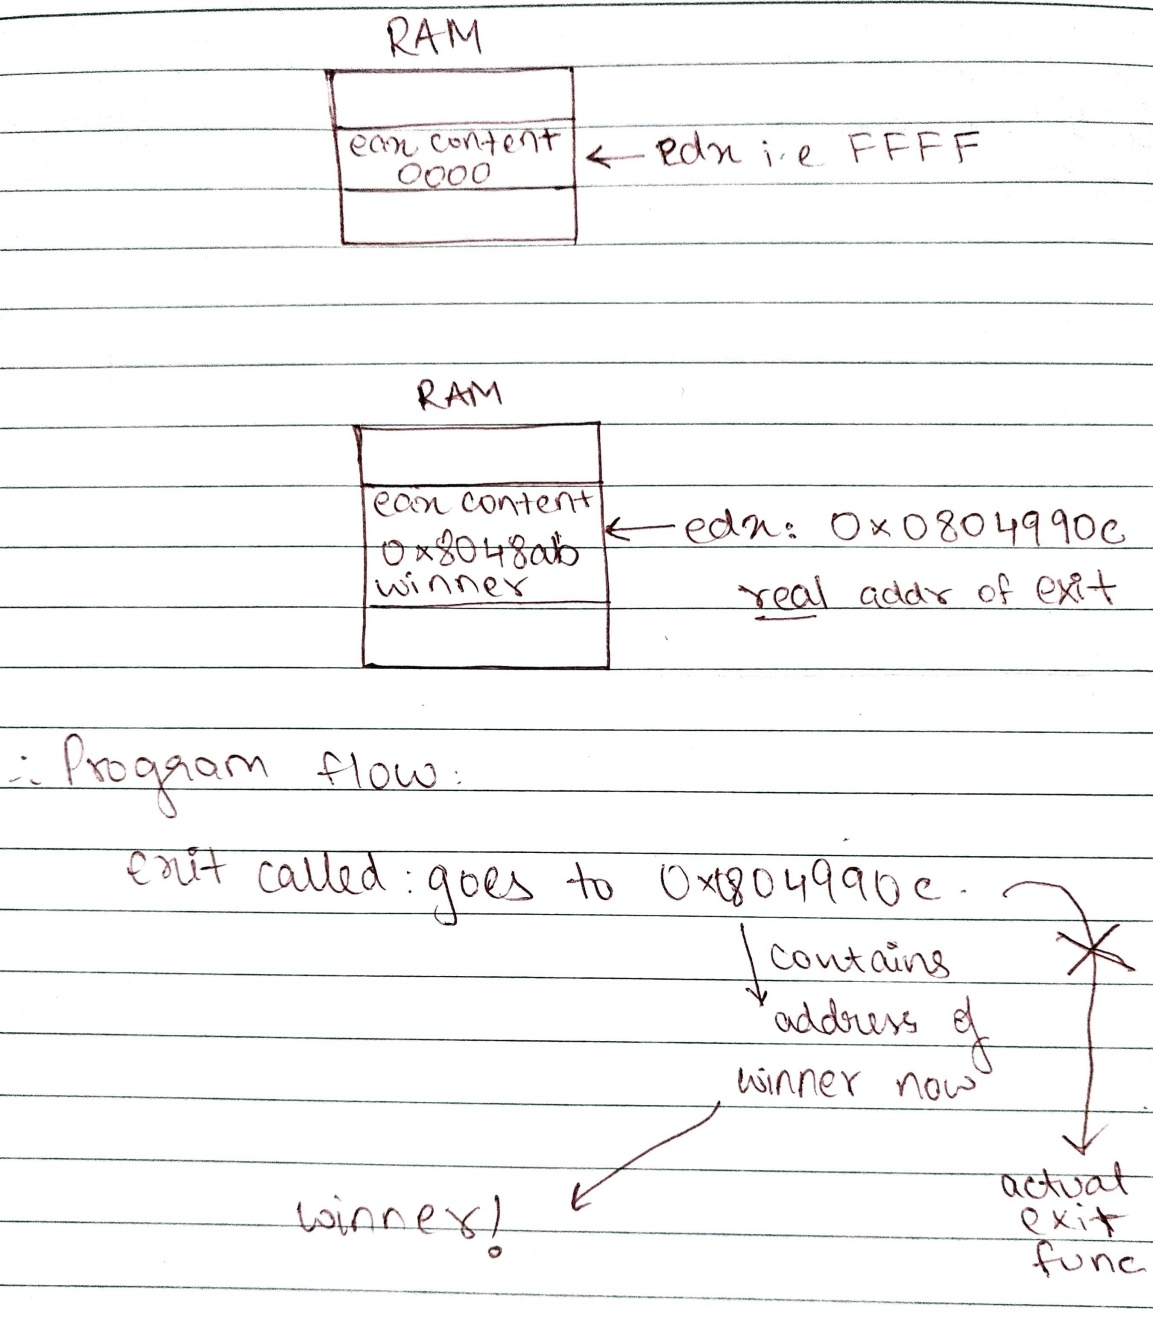 RAM
eax content
0000
← edx i.e FFFF
RAM
eax content
0x8048ab
winner
← edx: 0x0804990c
real addr of exit
∴ Program flow:
exit called: goes to 0x0804990c.
contains
address of
winner now
winner!
actual
exit
func